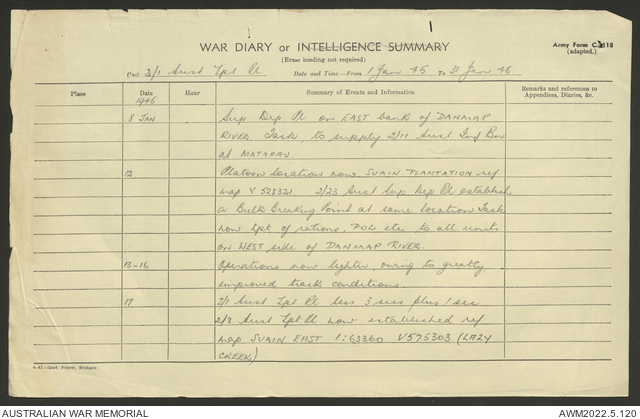 WAR DIARY or INTELLIGENCE SUMMARY
(Erase heading not required)
Army Form C.2118
(adapted.)
Unit 2/1 Aust Tpt Pl Date and Time—From 1 Jan 45 To 31 Jan 45
Place Date Hour Summary of Events and Information Remarks and references to Appendices, Diaries, &c.
1945
8 JAN Sup Dep Pl on EAST bank of DANMAP
RIVER Task, to supply 2/11 Aust Inf Bn
at MATAPAU
12 Platoon location now SUAIN PLANTATION ref
map V 528321. 2/23 Aust Sup Dep Pl establish
a Bulk Breaking Point at same location Task
now tpt of rations, POL etc to all units
on WEST side of DANMAP RIVER.
13-16 Operations now lighter, owing to greatly
improved track conditions.
17 2/1 Aust Tpt Pl less 3 secs plus 1 sec
2/3 Aust Tpt Pl now established ref
map SUAIN EAST 1:63360 V575303 (LAZY
CREEK)
4-43.—Govt. Printer, Brisbane.
AUSTRALIAN WAR MEMORIAL AWM2022.5.120